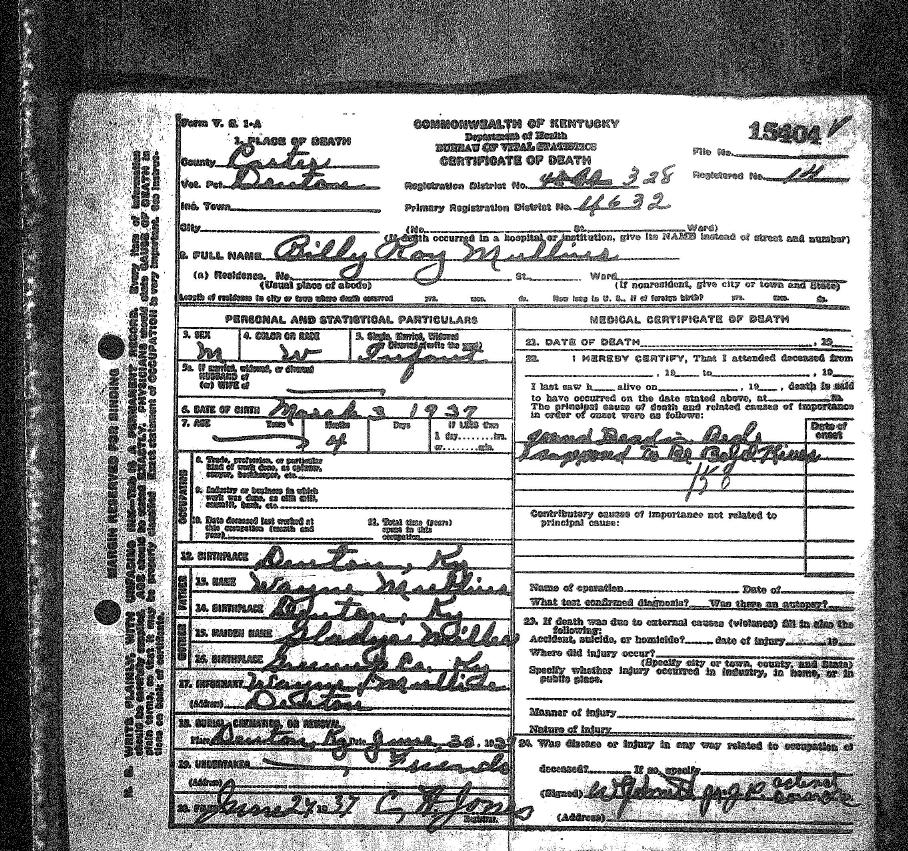 Form V. S. 1-A
COMMONWEALTH OF KENTUCKY
Department of Health
BUREAU OF VITAL STATISTICS
CERTIFICATE OF DEATH
15404
File No.
Registered No. 14
1. PLACE OF DEATH
County Carter
Vot. Pct. Denton
Inc. Town
City
Registration District No. 328
Primary Registration District No. 4632
(No. St. Ward)
(If death occurred in a hospital or institution, give its NAME instead of street and number)
2. FULL NAME Billy Ray Mullins
(a) Residence. No. St. Ward
(Usual place of abode) (If nonresident, give city or town and State)
Length of residence in city or town where death occurred yrs. mos. ds. How long in U. S., if of foreign birth? yrs. mos. ds.
PERSONAL AND STATISTICAL PARTICULARS
3. SEX M
4. COLOR OR RACE W
5. Single, Married, Widowed or Divorced (write the word) Infant
5a. If married, widowed, or divorced
HUSBAND of
(or) WIFE of
6. DATE OF BIRTH March 3 1937
7. AGE Years Months 4 Days If LESS than
1 day hrs.
or min.
OCCUPATION
8. Trade, profession, or particular
kind of work done, as spinner,
sawyer, bookkeeper, etc.
9. Industry or business in which
work was done, as silk mill,
sawmill, bank, etc.
10. Date deceased last worked at
this occupation (month and
year)
11. Total time (years)
spent in this
occupation
12. BIRTHPLACE Denton, Ky
FATHER
13. NAME Wayne Mullins
14. BIRTHPLACE Denton, Ky
MOTHER
15. MAIDEN NAME Gladys
16. BIRTHPLACE Co. Ky
17. INFORMANT Wayne Mullins
(Address) Denton
18. BURIAL, CREMATION, OR REMOVAL
Place Denton, Ky Date June, 30, 1937
19. UNDERTAKER Friends
(Address)
20. FILED June 27, 1937 C. H. Jones
Registrar.
MEDICAL CERTIFICATE OF DEATH
21. DATE OF DEATH , 19
22. I HEREBY CERTIFY, That I attended deceased from
, 19 to , 19
I last saw h alive on , 19 , death is said
to have occurred on the date stated above, at m.
The principal cause of death and related causes of importance
in order of onset were as follows:
Date of
onset
found Dead in Bed
supposed to Be Bold Hives
158
Contributory causes of importance not related to
principal cause:
Name of operation Date of
What test confirmed diagnosis? Was there an autopsy?
23. If death was due to external causes (violence) fill in also the
following:
Accident, suicide, or homicide? date of injury 19
Where did injury occur?
(Specify city or town, county, and State)
Specify whether injury occurred in industry, in home, or in
public place.
Manner of injury
Nature of injury
24. Was disease or injury in any way related to occupation of
deceased? If so, specify
(Signed)
(Address)
MARGIN RESERVED FOR BINDING